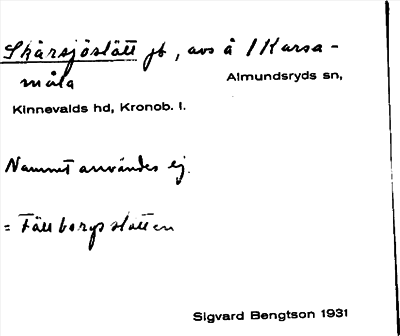 Skärsjöslätt jb, avs å 1 Karsa-
måla
Almundsryds sn,
Kinnevalds hd, Kronob. l.
Namnet användes ej.
= Fällborgsslätten
Sigvard Bengtson 1931